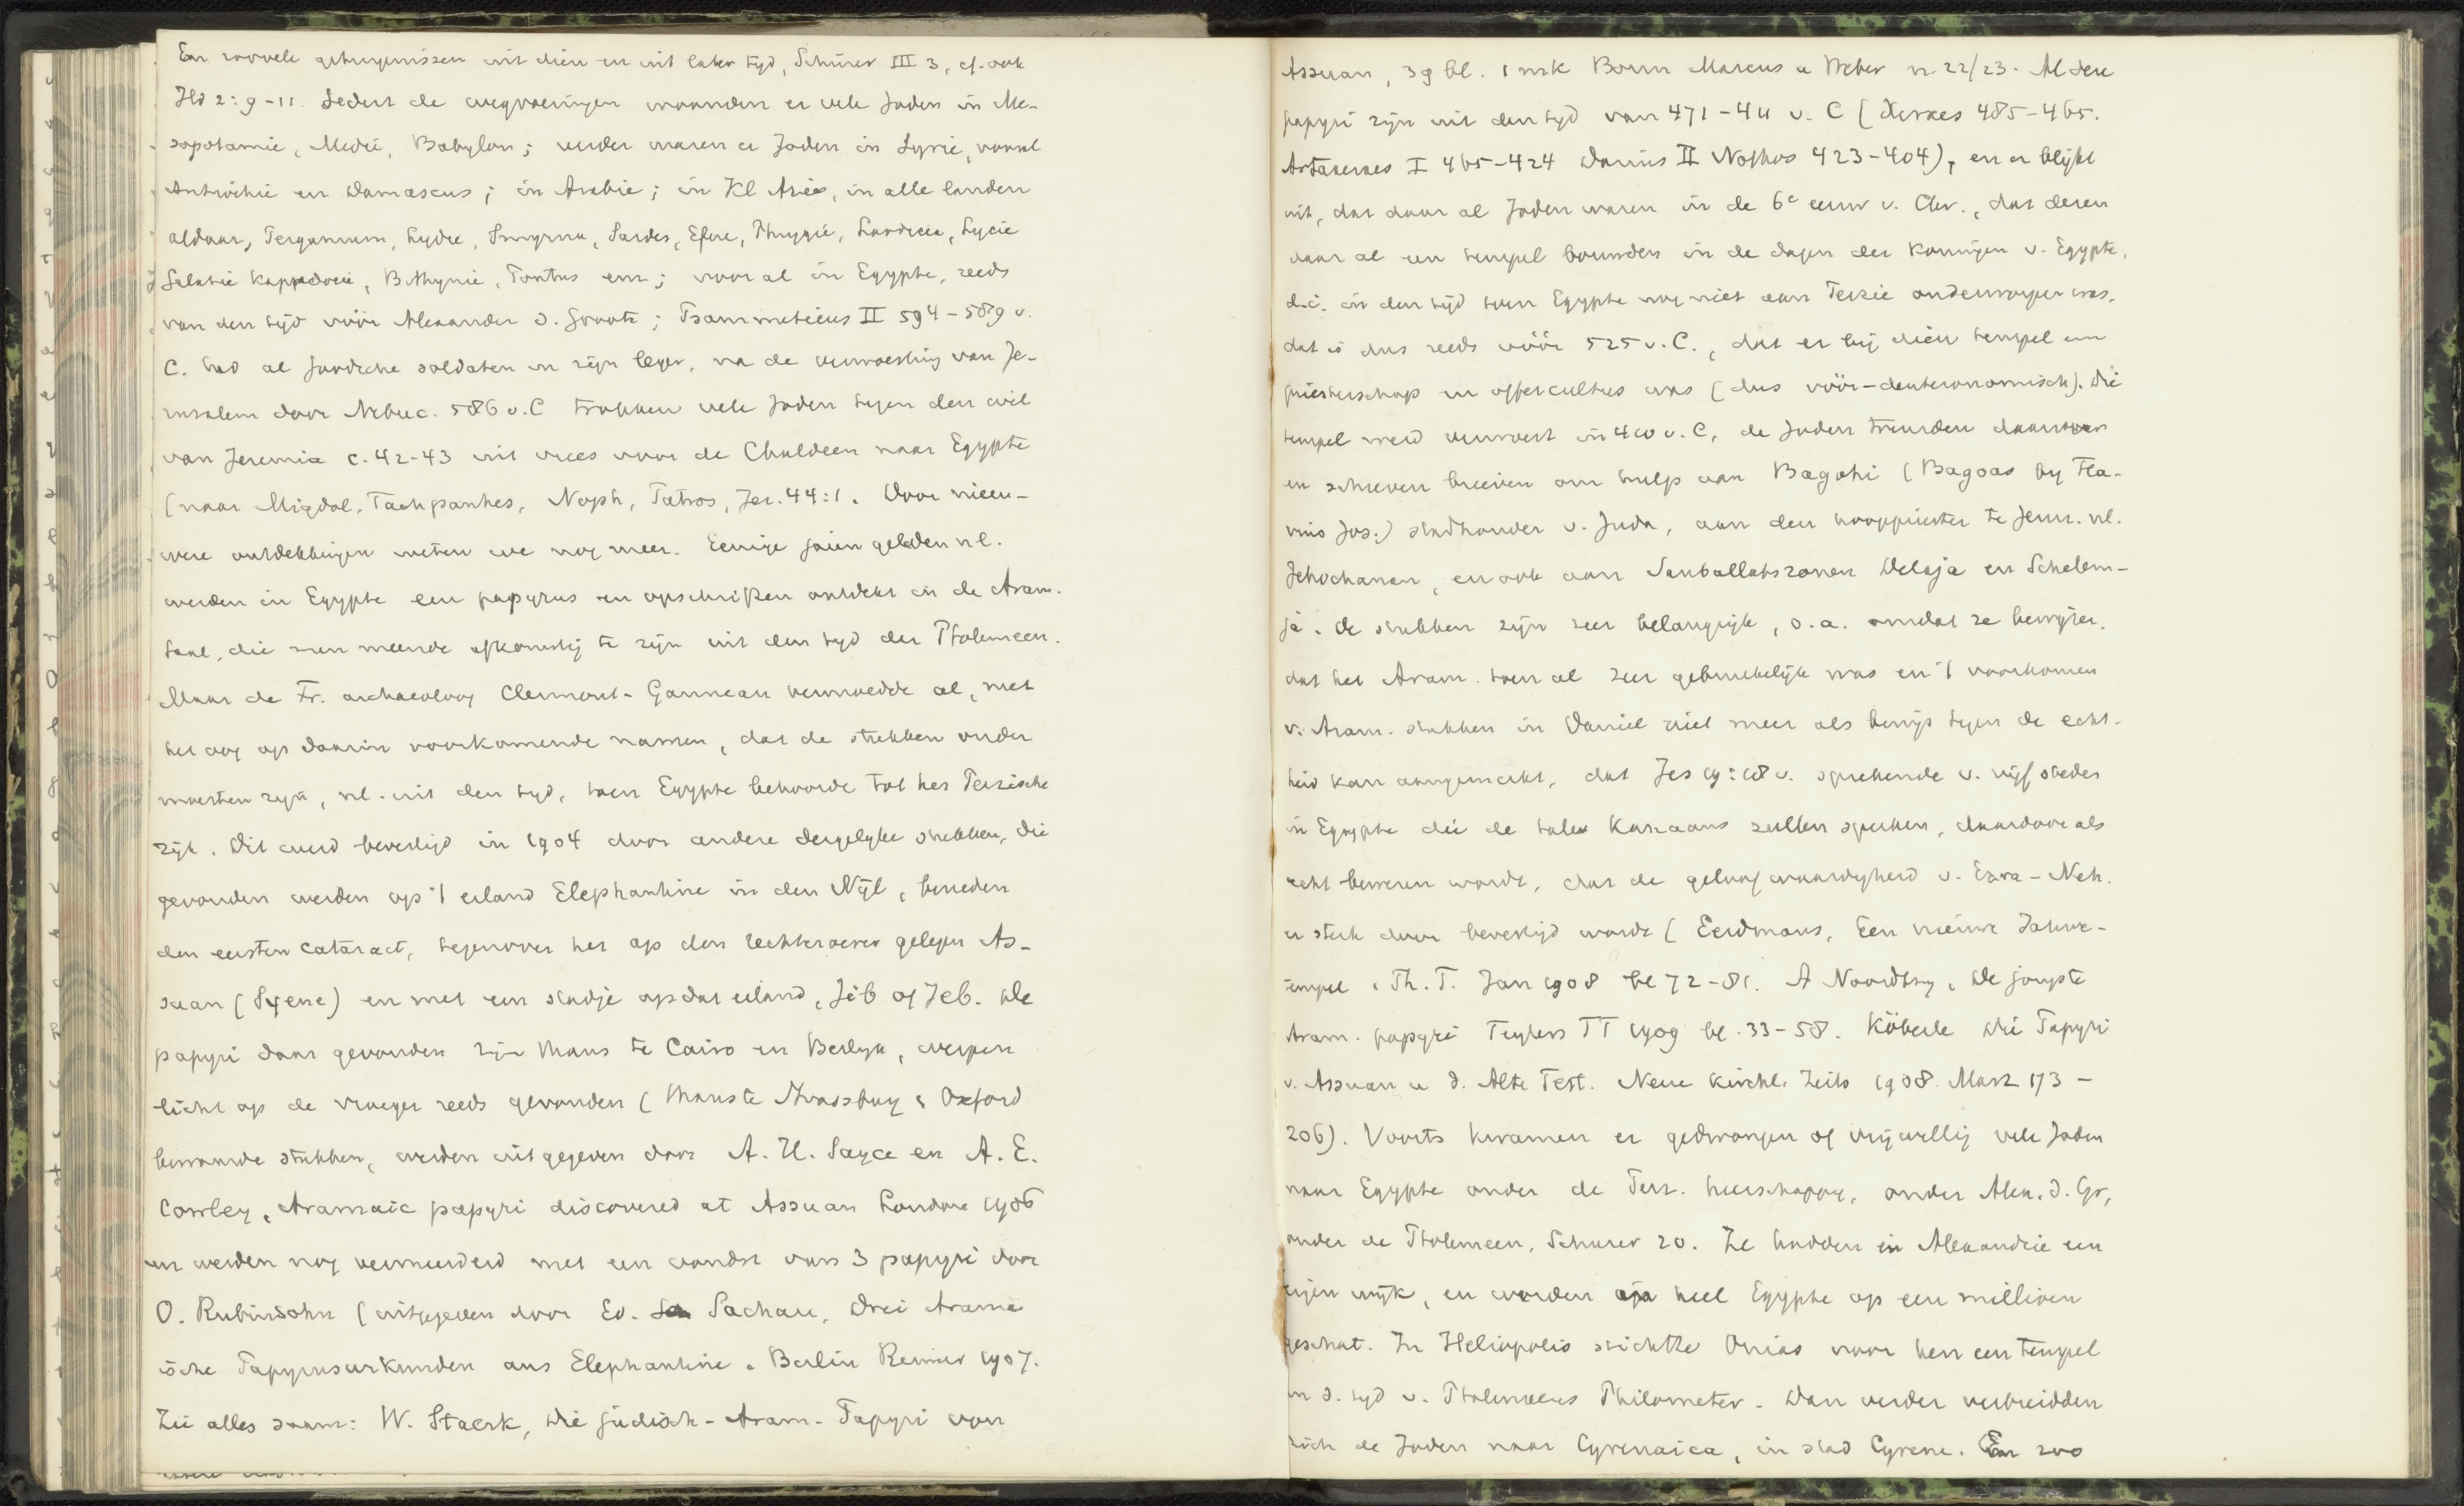 En zoovele getuigenissen uit dien en uit later tijd, Schürer III 3, cf. ook
Hd 2:9-11. Sedert de wegvoeringen woonden er vele Joden in Me-
sopotamie, Medië, Babylon; verder waren er Joden in Syrie, vooral
Antiochie en Damascus; in Arabie; in Kl Azië, in alle landen
aldaar, Pergamum, Lydie, Smyrna, Sardes, Efeze, Phrygië, Laodicea, Lycie
Galatië Kappadocië, Bithynie, Pontus enz; vooral in Egypte, reeds
van den tijd vóór Alexander d. Groote; Psammeticus II 594-589 v.
C. had al Joodsche soldaten in zijn leger, na de verwoesting van Je-
ruzalem door Nebuc. 586 v.C trokken vele Joden tegen den wil
van Jeremia c. 42-43 uit vrees voor de Chaldeen naar Egypte
(naar Migdol, Tachpanhes, Noph, Patros, Jer. 44:1. Door nieu-
were ontdekkingen weten we nog meer. Eenige jaren geleden nl.
werden in Egypte een papyrus en opschriften ontdekt in de Aram.
taal, die men meende afkomstig te zijn uit den tijd der Ptolemeen.
Maar de Fr. archaeoloog Clermont-Ganneau vermoedde al, met
het oog op daarin voorkomende namen, dat de stukken ouder
moesten zijn, nl. uit den tijd, toen Egypte behoorde tot het Perzische
rijk. Dit werd bevestigd in 1904 door andere dergelijke stukken, die
gevonden werden op 't eiland Elephantine in den Nijl, beneden
den eersten cataract, tegenover het op den rechteroever gelegen As-
suan (Syene) en met een stadje op dat eiland, Jêb of Jeb. De
papyri daar gevonden zijn thans te Cairo en Berlijn, werpen
licht op de vroeger reeds gevonden (thans te Strassburg & Oxford
bewaarde stukken, werden uitgegeven door A. H. Sayce en A. E.
Cowley, Aramaic papyri discovered at Assuan London 1906
en werden nog vermeerderd met een vondst van 3 papyri door
O. Rubinsohn (uitgegeven door Ed. Sachau, Drei Aramä
ische Papyrusurkunden aus Elephantine. Berlin Reimer 1907.
Zie alles saam: W. Staerk, Die jüdisch-Aram. Papyri von
Assuan, 39 bl. 1 mk Bonn Marcus u Weber nr 22/23. Al deze
papyri zijn uit den tijd van 471-411 v. C (Xerxes 485-465.
Artaxerxes I 465-424 Darius II Nothos 423-404), en er blijkt
uit, dat daar al Joden waren in de 6e eeuw v. Chr., dat dezen
daar al een tempel bouwden in de dagen der koningen v. Egypte,
d.i. in den tijd toen Egypte nog niet aan Perzie onderworpen was,
dat is dus reeds vóór 525 v. C., dat er bij dien tempel een
priesterschap en offercultus was (dus vóór-deuteronomisch). Die
tempel werd verwoest in 410 v. C, de Joden treurden daarover
en schreven brieven om hulp aan Bagohi (Bagoas bij Fla-
vius Jos.) stadhouder v. Juda, aan den hoogpriester te Jeruz. nl.
Jehochanan, en ook aan Sanballats zonen Delaja en Schelem-
ja. De stukken zijn zeer belangrijk, o.a. omdat ze bewijzen,
dat het Aram. toen al zeer gebruikelijk was en 't voorkomen
v. Aram. stukken in Daniel niet meer als bewijs tegen de echt-
heid kan aangemerkt, dat Jes 19:18 v. sprekende v. vijf steden
in Egypte die de tale Kanaans zullen spreken, daardoor als
echt bewezen wordt, dat de geloofwaardigheid v. Ezra-Neh.
er sterk door bevestigd wordt (Eerdmans, Een nieuwe Jahwe-
tempel, Th. T. Jan 1908 bl 72-81. A Noordtzy, De jongste
Aram. papyri Teylers TT 1909 bl. 33-58. Köberle Die Papyri
v. Assuan u d. Alte Test. Neue Kirchl. Zeits 1908. Marz 173-
206). Voorts kwamen er gedwongen of vrijwillig vele Joden
naar Egypte onder de Perz. heerschappij, onder Alex. d. Gr,
onder de Ptolemeen, Schurer 20. Ze hadden in Alexandrie een
eigen wijk, en worden heel Egypte op een millioen
geschat. In Heliopolis stichtte Onias voor hen een tempel
in d. tijd v. Ptolemaeus Philometor. Dan verder verbreidden
zich de Joden naar Cyrenaica, in stad Cyrene. En zoo